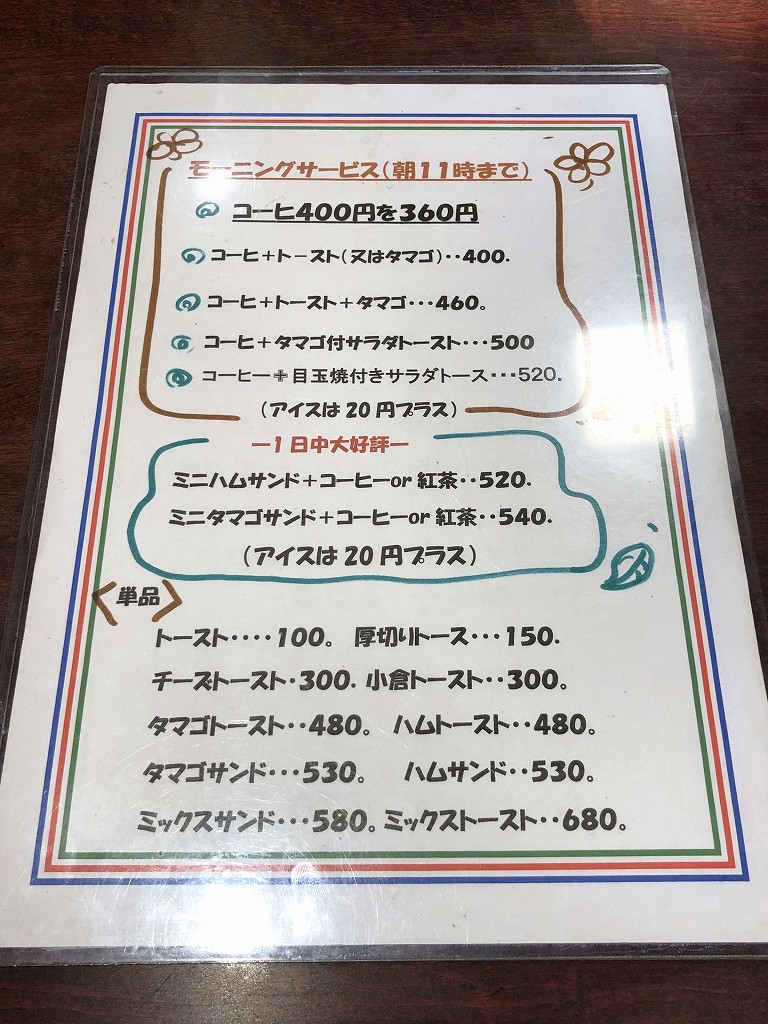 モーニングサービス(朝11時まで)
コーヒ400円を360円
コーヒ+トースト(又はタマゴ)‥400.
コーヒ+トースト+タマゴ…460。
コーヒ+タマゴ付サラダトースト…500
コーヒー+目玉焼付きサラダトース…520.
(アイスは20円プラス)
ー1日中大好評ー
ミニハムサンド+コーヒーor紅茶‥520.
ミニタマゴサンド+コーヒーor紅茶‥540.
(アイスは20円プラス)
〈単品〉
トースト‥‥100。 厚切りトース…150.
チーズトースト・300. 小倉トースト‥300。
タマゴトースト‥480。 ハムトースト‥480。
タマゴサンド…530。 ハムサンド‥530。
ミックスサンド…580。ミックストースト‥680。